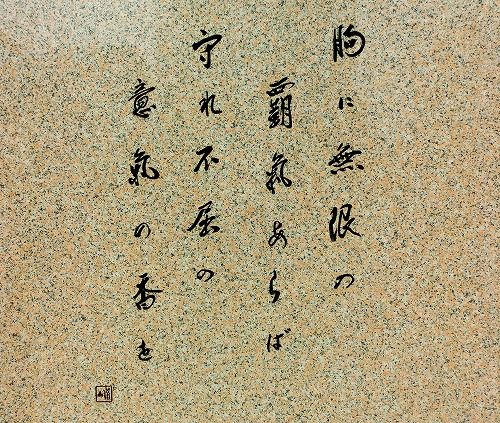 胸に無限の
覇氣あらば
守れ不屈の
意氣の香を